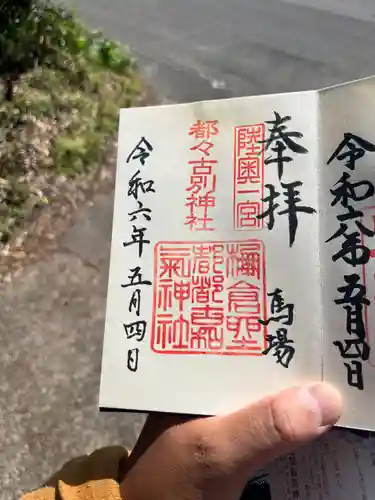 令和六年五月四日
奉拝
馬場
陸奥一宮
都々古別神社
棚倉
都都古和
氣神社
令和六年五月四日